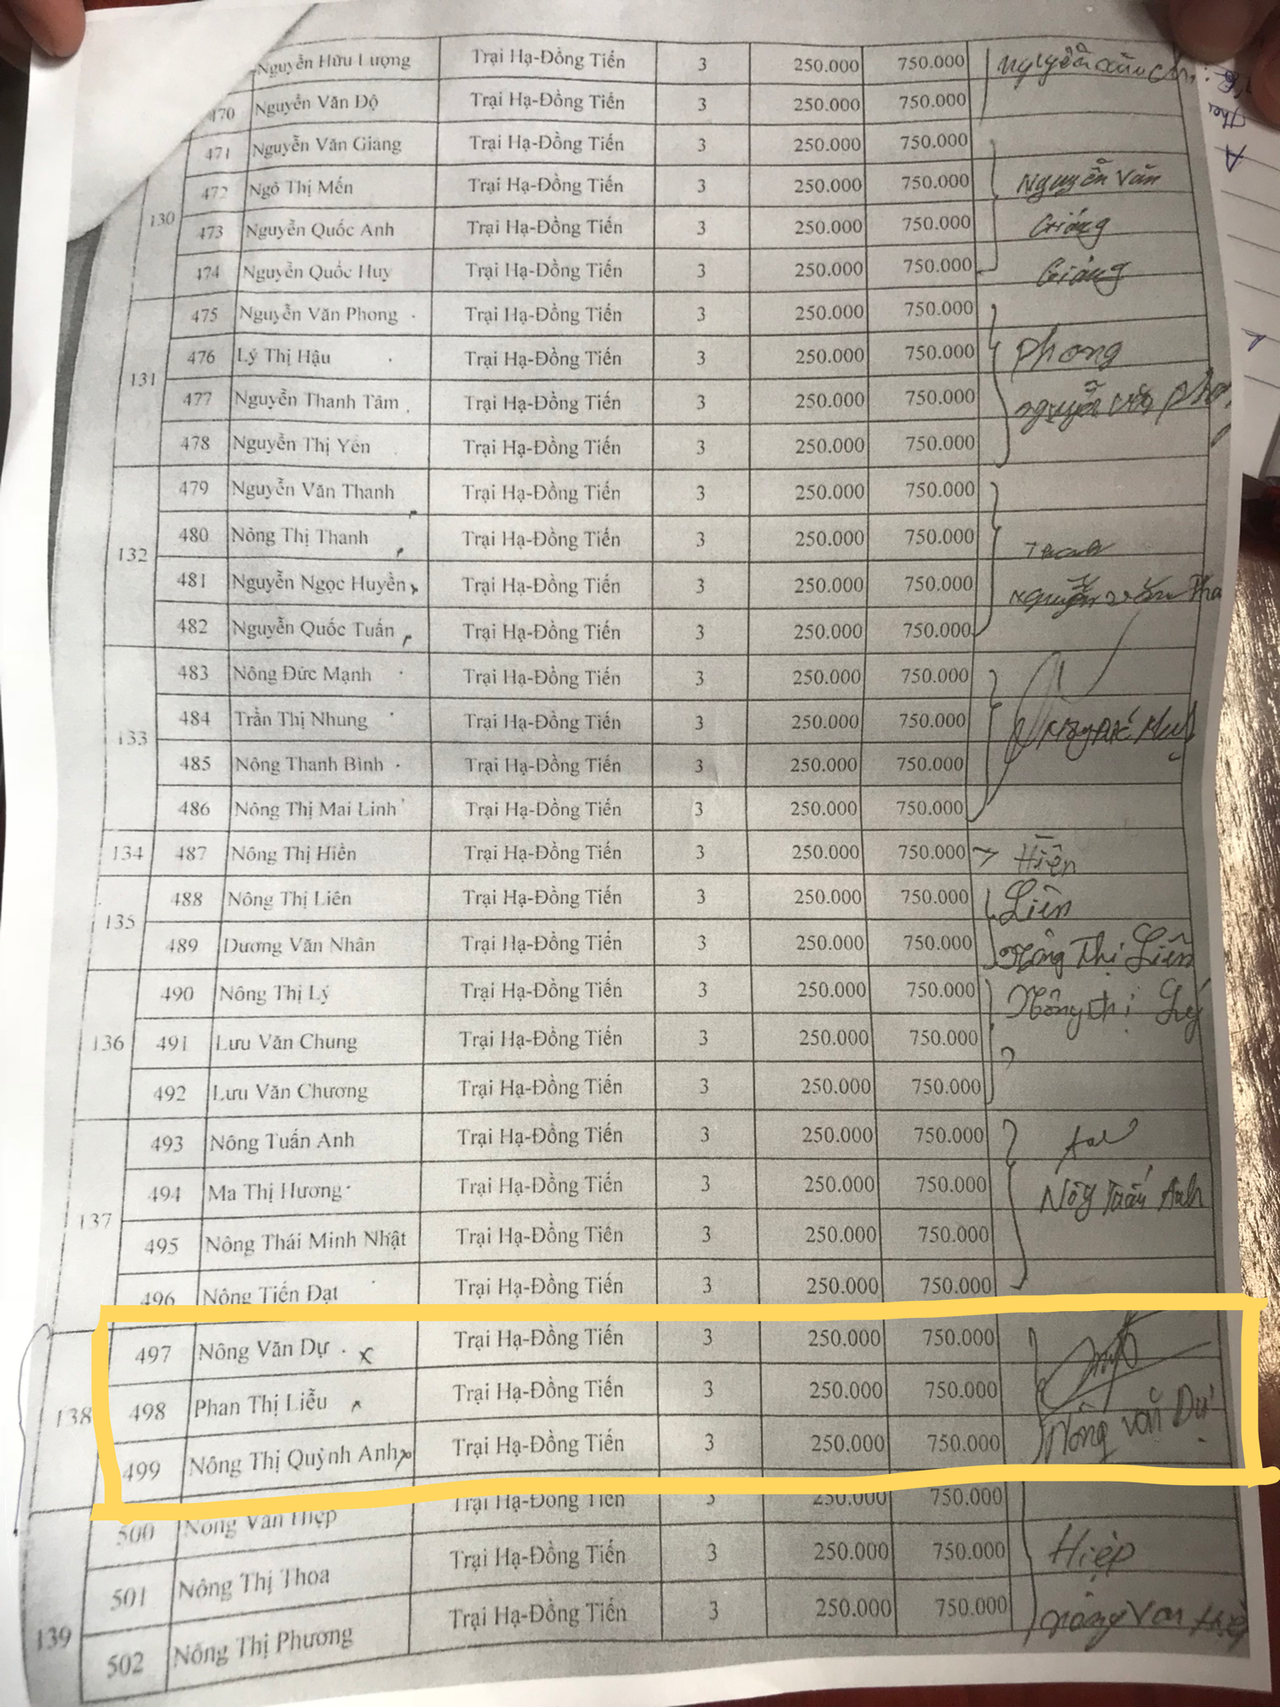 Nguyễn Hữu Lượng Trại Hạ-Đồng Tiến 3 250.000 750.000
470 Nguyễn Văn Độ Trại Hạ-Đồng Tiến 3 250.000 750.000
471 Nguyễn Văn Giang Trại Hạ-Đồng Tiến 3 250.000 750.000
130 472 Ngô Thị Mến Trại Hạ-Đồng Tiến 3 250.000 750.000 Nguyễn Văn
473 Nguyễn Quốc Anh Trại Hạ-Đồng Tiến 3 250.000 750.000 Giảng
474 Nguyễn Quốc Huy Trại Hạ-Đồng Tiến 3 250.000 750.000 Giảng
475 Nguyễn Văn Phong Trại Hạ-Đồng Tiến 3 250.000 750.000
131 476 Lý Thị Hậu Trại Hạ-Đồng Tiến 3 250.000 750.000 Phong
477 Nguyễn Thanh Tâm Trại Hạ-Đồng Tiến 3 250.000 750.000 Nguyễn Văn
478 Nguyễn Thị Yên Trại Hạ-Đồng Tiến 3 250.000 750.000
479 Nguyễn Văn Thanh Trại Hạ-Đồng Tiến 3 250.000 750.000
132 480 Nông Thị Thanh Trại Hạ-Đồng Tiến 3 250.000 750.000
481 Nguyễn Ngọc Huyền Trại Hạ-Đồng Tiến 3 250.000 750.000 Nguyễn Văn Tha
482 Nguyễn Quốc Tuấn Trại Hạ-Đồng Tiến 3 250.000 750.000
483 Nông Đức Mạnh Trại Hạ-Đồng Tiến 3 250.000 750.000
133 484 Trần Thị Nhung Trại Hạ-Đồng Tiến 3 250.000 750.000
485 Nông Thanh Bình Trại Hạ-Đồng Tiến 3 250.000 750.000
486 Nông Thị Mai Linh Trại Hạ-Đồng Tiến 3 250.000 750.000
134 487 Nông Thị Hiền Trại Hạ-Đồng Tiến 3 250.000 750.000 Hiền
135 488 Nông Thị Liên Trại Hạ-Đồng Tiến 3 250.000 750.000 Liên
489 Dương Văn Nhân Trại Hạ-Đồng Tiến 3 250.000 750.000 Nông Thị Liên
490 Nông Thị Lý Trại Hạ-Đồng Tiến 3 250.000 750.000 Nông Thị Lý
136 491 Lưu Văn Chung Trại Hạ-Đồng Tiến 3 250.000 750.000
492 Lưu Văn Chương Trại Hạ-Đồng Tiến 3 250.000 750.000
493 Nông Tuấn Anh Trại Hạ-Đồng Tiến 3 250.000 750.000
137 494 Ma Thị Hương Trại Hạ-Đồng Tiến 3 250.000 750.000 Nông Tuấn Anh
495 Nông Thái Minh Nhật Trại Hạ-Đồng Tiến 3 250.000 750.000
496 Nông Tiến Đạt Trại Hạ-Đồng Tiến 3 250.000 750.000
497 Nông Văn Dự x Trại Hạ-Đồng Tiến 3 250.000 750.000
138 498 Phan Thị Liễu Trại Hạ-Đồng Tiến 3 250.000 750.000 Nông Văn Dự
499 Nông Thị Quỳnh Anh x Trại Hạ-Đồng Tiến 3 250.000 750.000
500 Nông Văn Hiệp Trại Hạ-Đồng Tiến 3 250.000 750.000
139 501 Nông Thị Thoa Trại Hạ-Đồng Tiến 3 250.000 750.000 Hiệp
502 Nông Thị Phương Trại Hạ-Đồng Tiến 3 250.000 750.000 Nông Van Hiệp